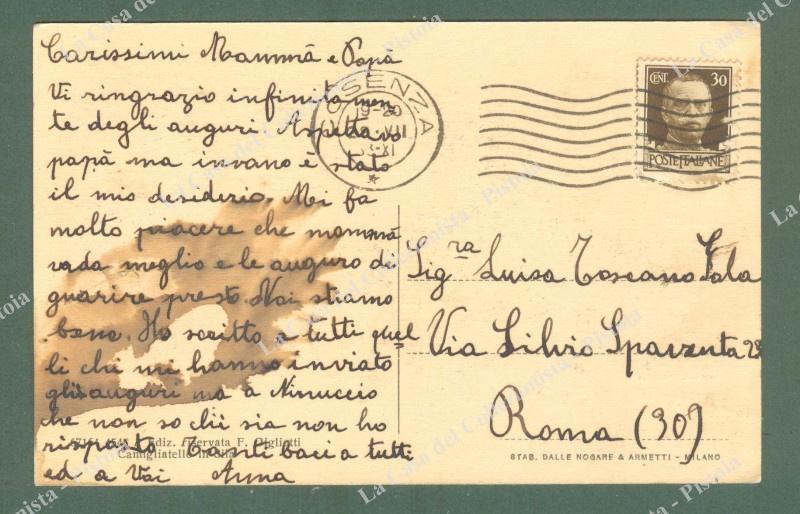 Carissimi Mammà e Papà
Vi ringrazio infinitamen
te degli auguri Aspettavo
papà ma invano è stato
il mio desiderio. Mi fa
molto piacere che mammà
vada meglio e le auguro di
guarire presto. Noi stiamo
bene. Ho scritto a tutti quel
li che mi hanno inviato
gli auguri ma a Ninuccio
che non so chi sia non ho
risposto Tanti baci a tutti
ed a Voi Anna
Ediz. riservata F.
Camigliatello in Sila
COSENZA
19-20
CENT. 30
POSTE ITALIANE
Sig.ra Luisa Toscano Fala
Via Silvio Sparzenta 28
Roma (30)
STAB. DALLE NOGARE & ARMETTI - MILANO
La Casa del Collezionista - Pistoia